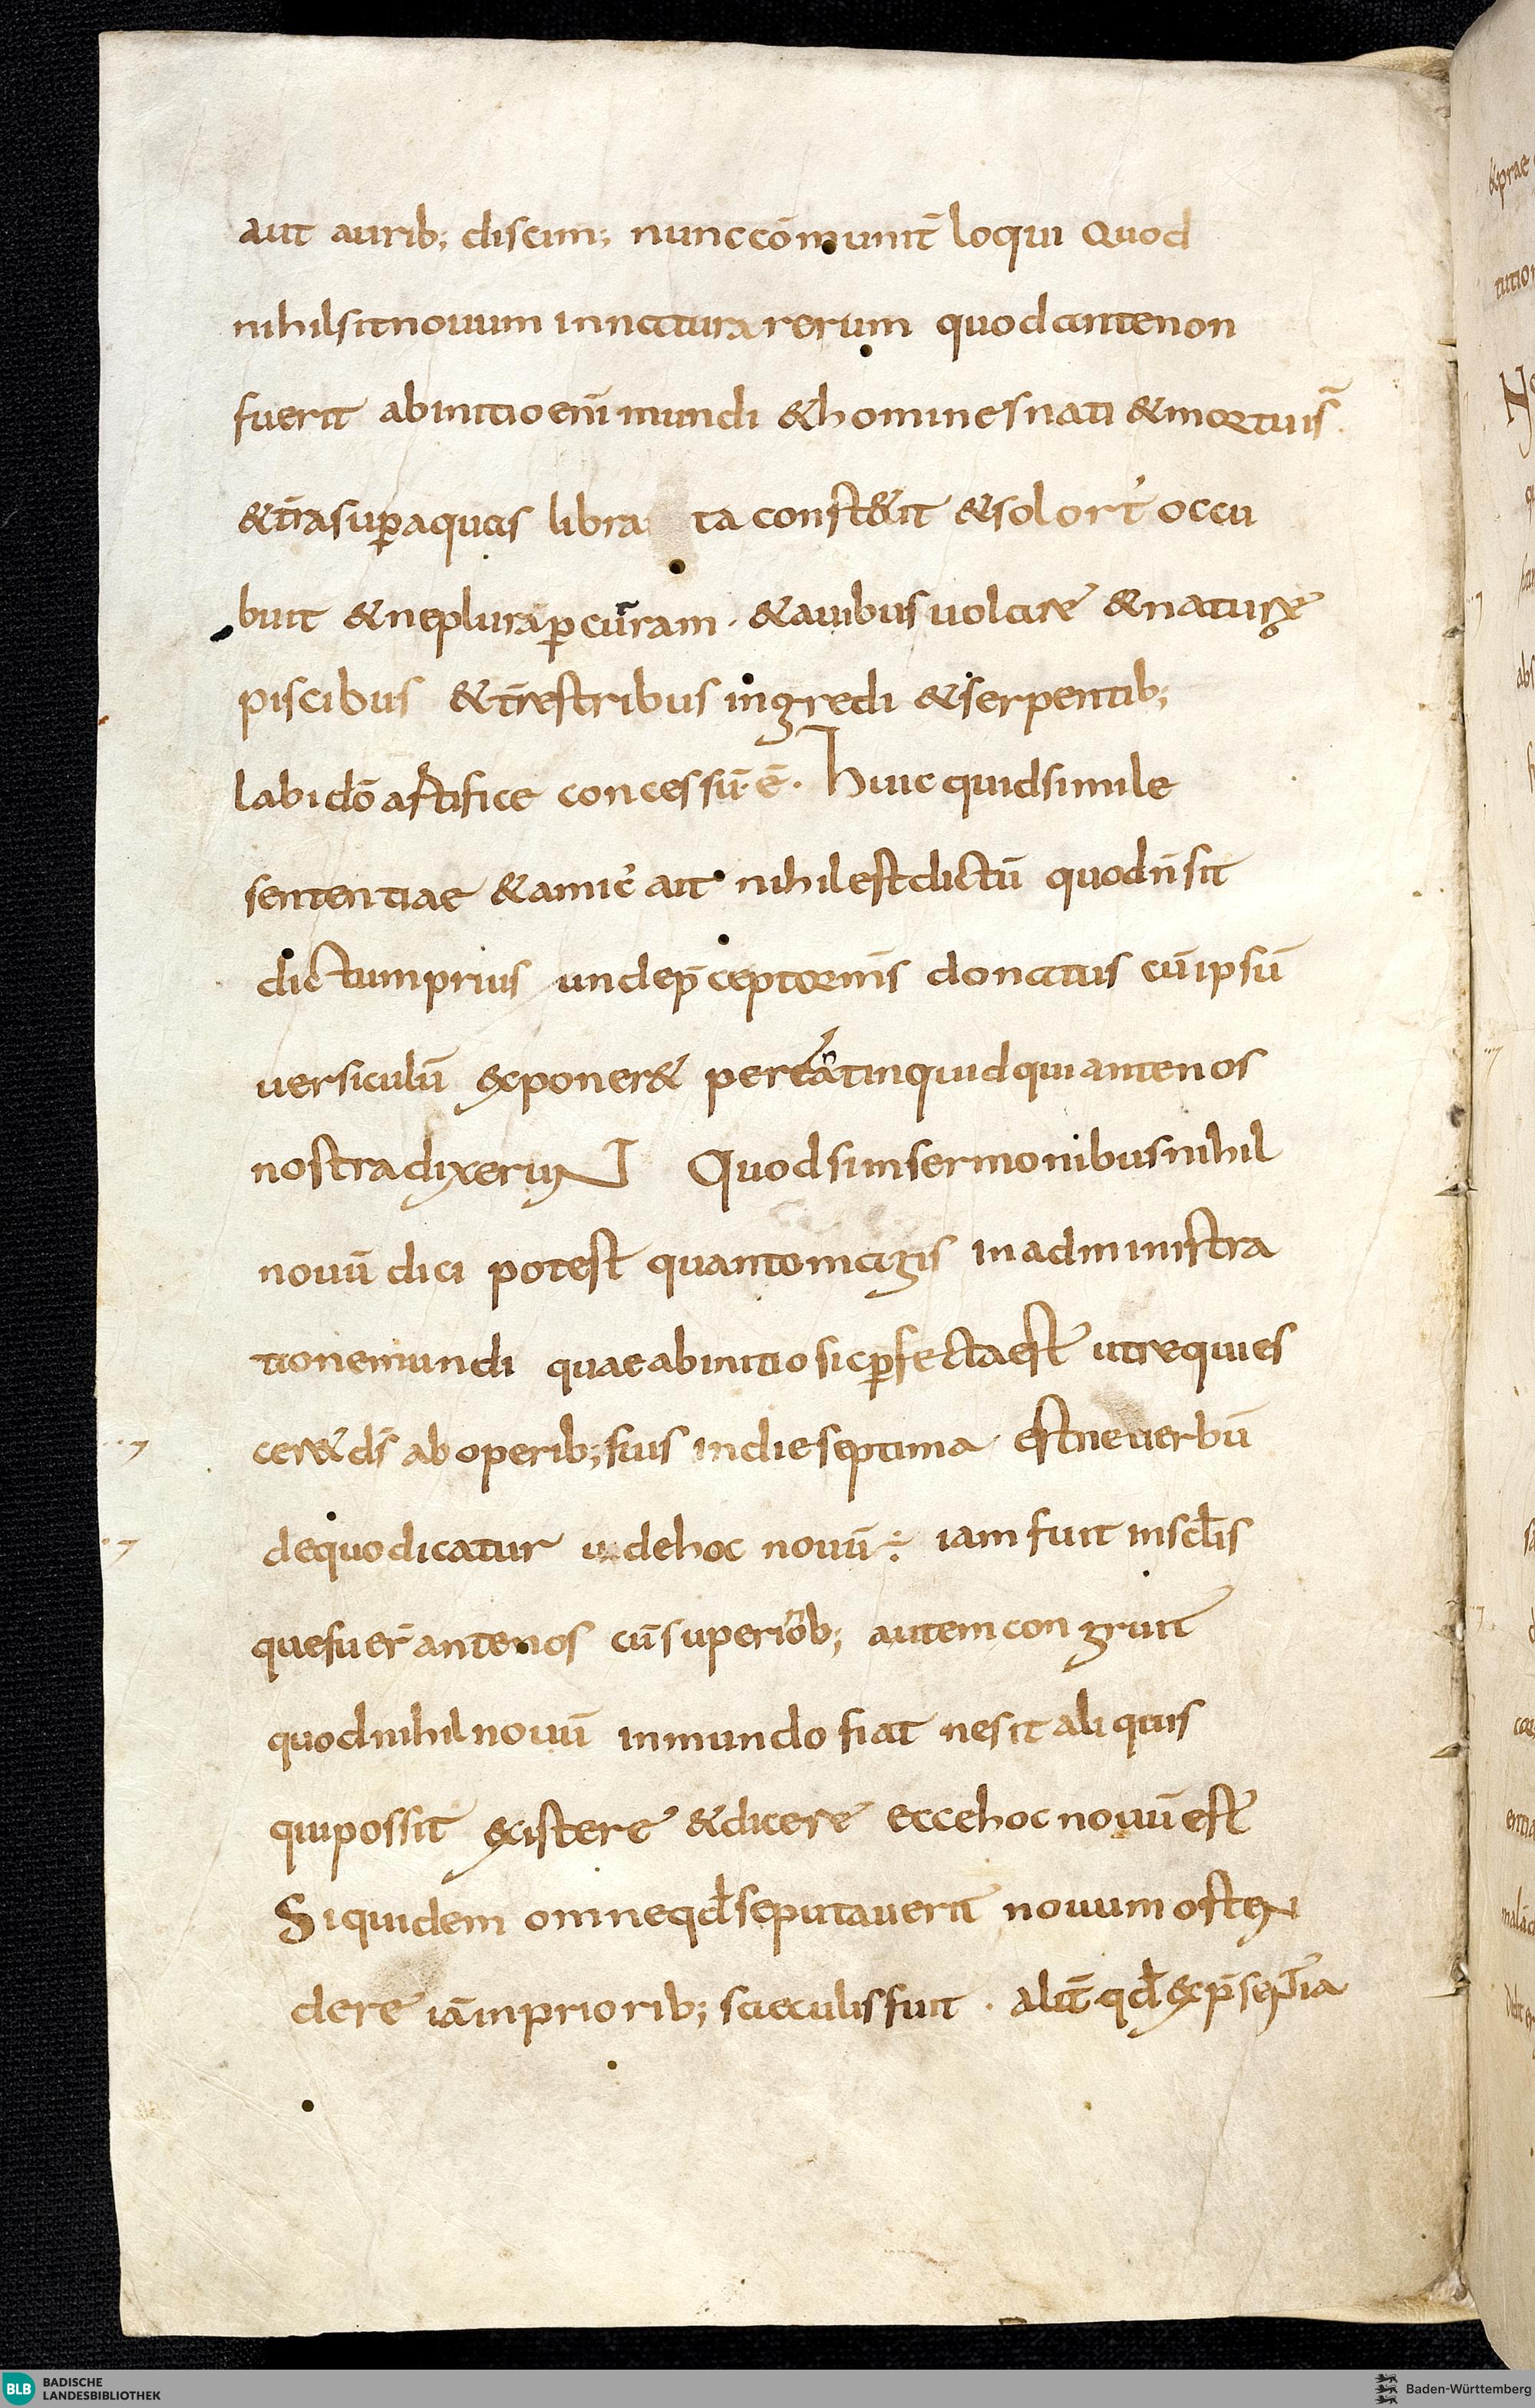 aut aurib; discim; nunc cōmunit̄ loqui Quod
nihil sit nouum in natura rerum quod ante non
fuerit ab initio enī mundi & homines nati & mortui s̄
& t̄ra sup̱ aquas libra ta const&it & sol ort' occu
buit & ne plura p̱curram · & auibus uolare & naturę
piscibus & t̄restribus ingredi & serpentib;
labi dō artifice concessū · ē · Huic quid simile
sententiae & amic' ait nihil est dictū quod n̄ sit
dictum prius unde p̄ceptor m̄s donatus cū ipsū
uersiculū exponer& pereant inquid qui ante nos
nostra dixerunT Quod si in sermonibus nihil
nouū dici potest quanto magis in administra
tione mundi quae ab initio sic p̱fecta est ut requies
cer& d̄s ab operib; suis in die septima Est ne uerbū
de quo dicatur uide hoc nouū ÷ iam fuit in sclīs
que fuer̄ ante nos cū superiorib; autem congruit
quod nihil nouū in mundo fiat ne sit aliquis
qui possit existere & dicere ecce hoc nouū est
Siquidem omne qd̄ se putauerit nouum osten
dere iā in priorib; saeculis fuit · alit̄ qd̄ ex p̄sep̄tia
&prae
BLB BADISCHE
LANDESBIBLIOTHEK
Baden-Württemberg